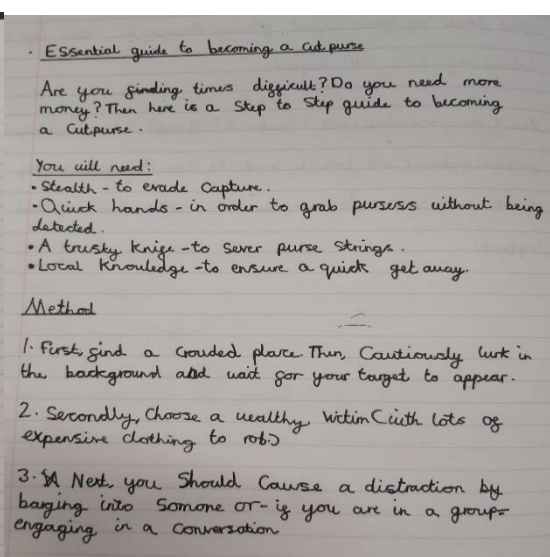 . Essential guide to becoming a cut purse
Are you finding times difficult? Do you need more
money? Then here is a Step to Step guide to becoming
a Cutpurse.
You will need:
• Stealth - to evade Capture.
• Quick hands - in order to grab pursess without being
detected.
• A trusty knife - to sever purse strings.
• Local knowledge - to ensure a quick get away.
Method
1. First, find a Crowded place. Then, Cautiously lurk in
the background and wait for your target to appear.
2. Secondly, Choose a wealthy victim (with lots of
expensive clothing to rob.)
3. Next, you Should Cause a distraction by
barging into Somone or - if you are in a group -
engaging in a Conversation